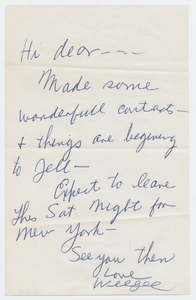 Hi dear---
Made some
wonderfull contact-
& things are begining
to Jell-
Expect to leave
this Sat Night for
New York-
See you then
Love
Weegee